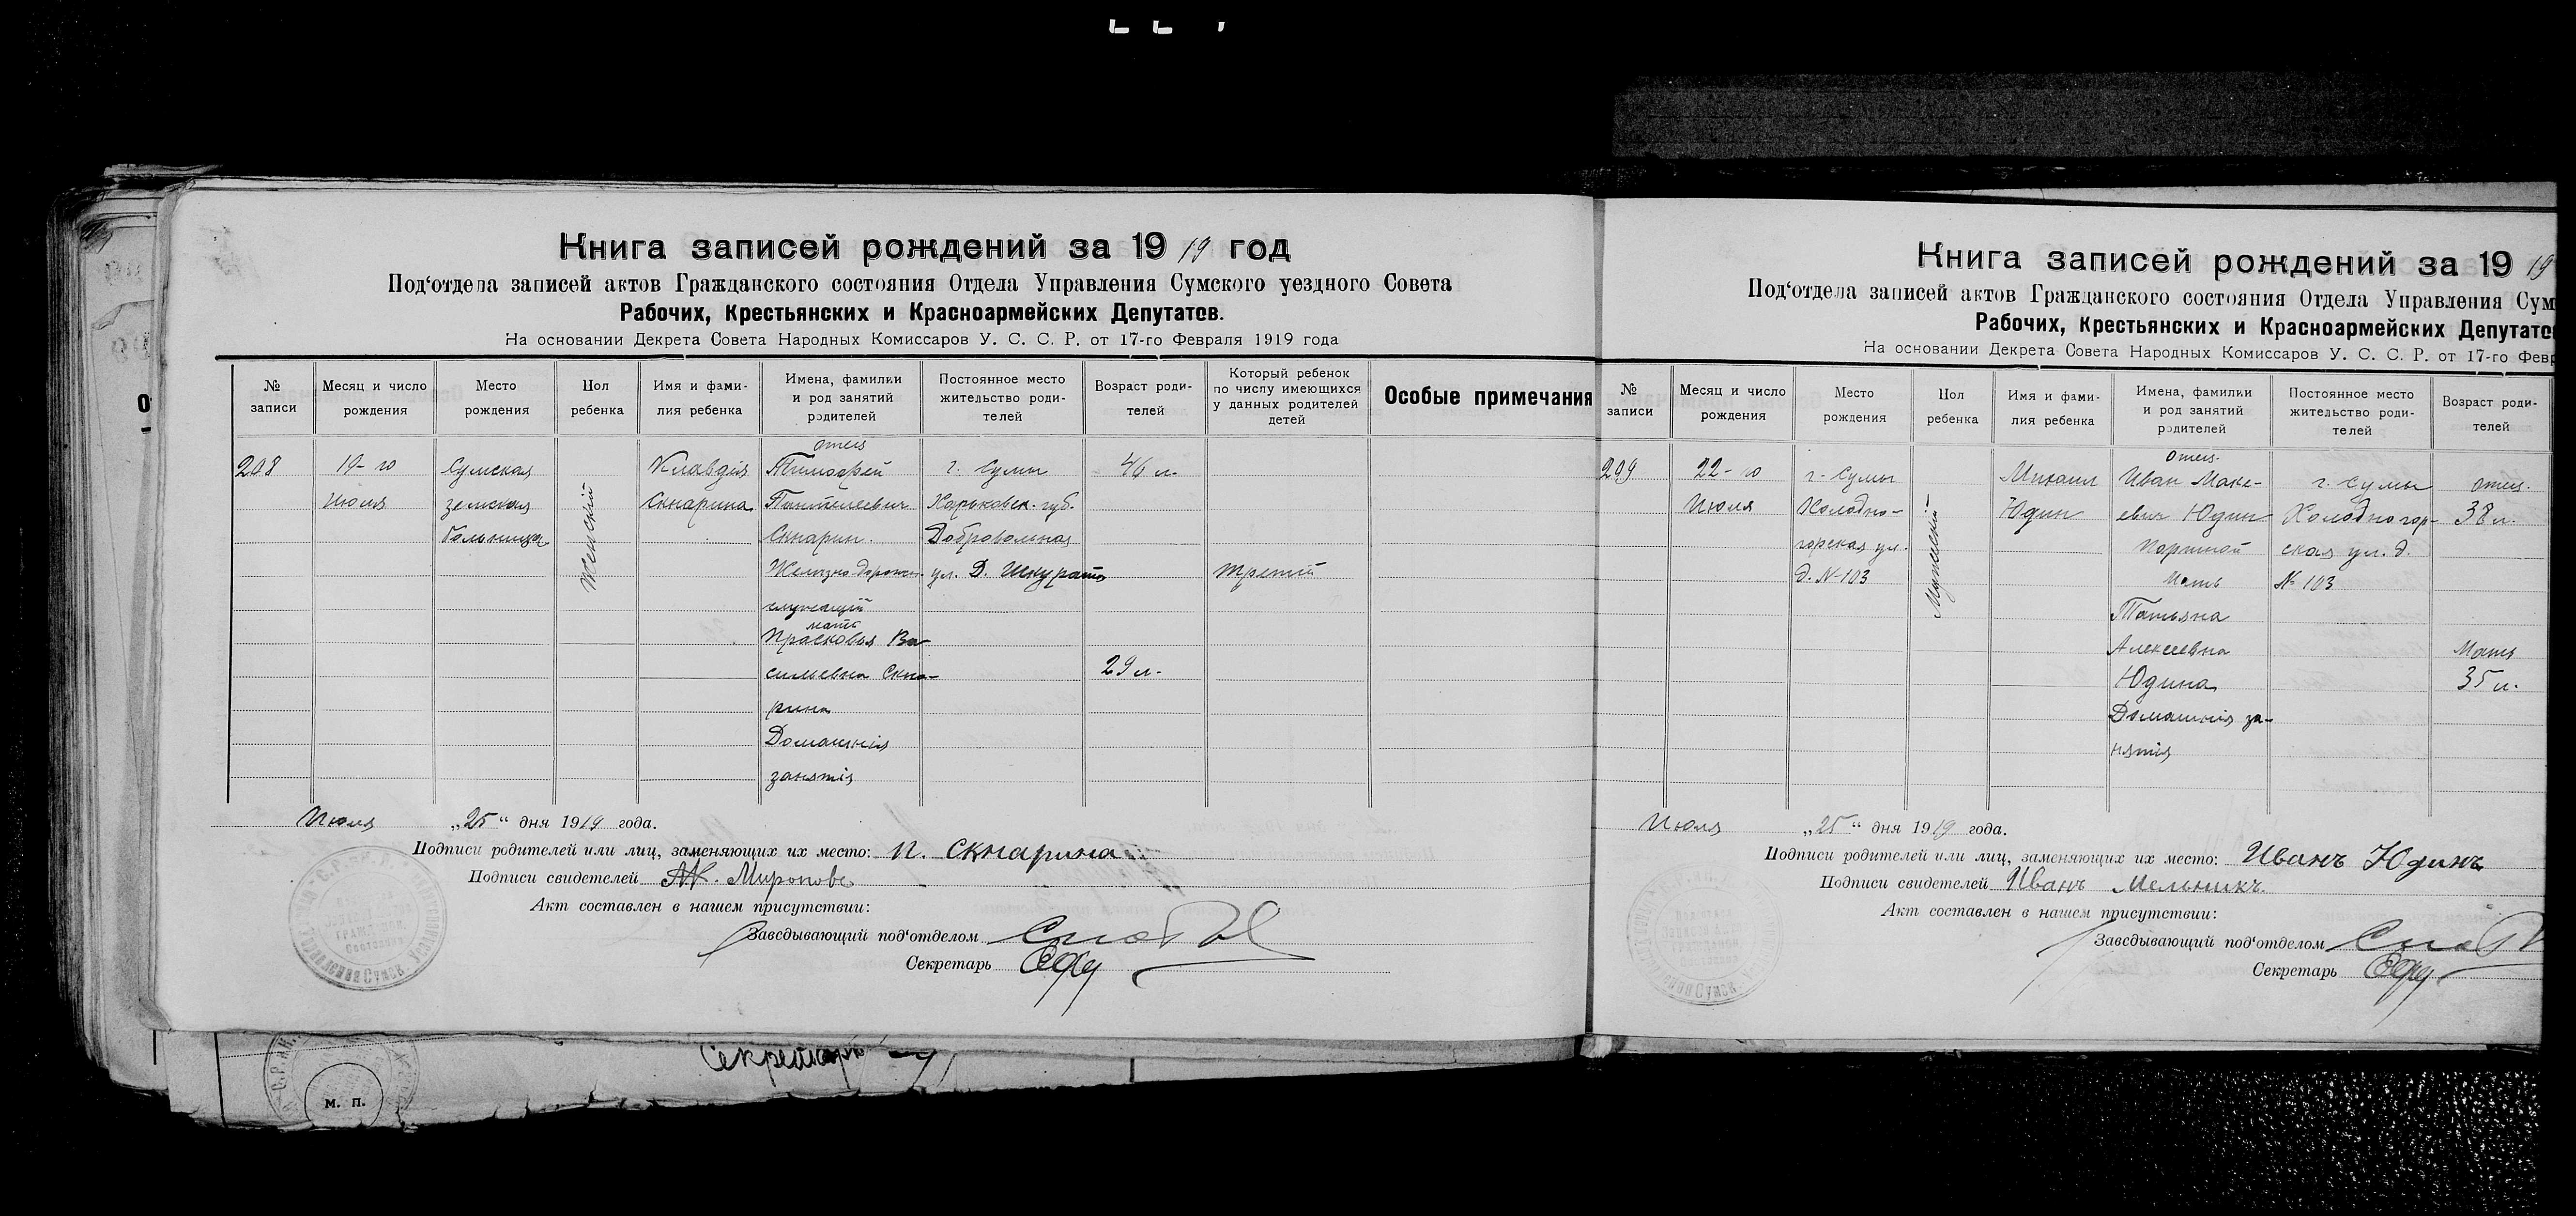 Книга записей рождений за 1919 год
Под‘отдела записей актов Гражданского состояния Отдела Управления Сумского уездного Совета
Рабочих, Крестьянских и Красноармейских Депутатов.
На основании Декрета Совета Народных Комиссаров У. С. С. Р. от 17-го Февраля 1919 года
№ записи
Месяц и число рождения
Место рождения
Пол ребенка
Имя и фами-
лия ребенка
Имена, фамилии
и род занятий
родителей
Постоянное место
жительство роди-
телей
Возраст роди-
телей
Который ребенок
по числу имеющихся
у данных родителей
детей
Особые примечания
208
19-го
Июля
Сумская
земская
больница
Женский
Клавдія
Скнарина
отец
Тимофей
Пантелеевич
Скнарин.
Железно дорожн.
служащій
мать
Прасковья Ва-
сильевна Скна-
рина
Домашнія
занятія
г. Сумы
Харьковск. губ.
Добровольная
ул. Д. Шкурата
46 л.
29 л.
третій
Июля „25“ дня 1919 года.
Подписи родителей или лиц, заменяющих их место: П. Скнарина
Подписи свидетелей
Акт составлен в нашем присутствии:
Заведывающий под‘отделом
Секретарь
Секретарь
м. п.
Книга записей рождений за 1919
Под‘отдела записей актов Гражданского состояния Отдела Управления Сум
Рабочих, Крестьянских и Красноармейских Депутатов
На основании Декрета Совета Народных Комиссаров У. С. С. Р. от 17-го Февр
№ записи
Месяц и число рождения
Место рождения
Пол ребенка
Имя и фами-
лия ребенка
Имена, фамилии
и род занятий
родителей
Постоянное место
жительство роди-
телей
Возраст роди-
телей
209
22-го
Июля
г. Сумы
Холодно-
горская ул.
д. № 103
Мужской
Михаил
Юдин
отец
Иван Маке-
евич Юдин
Портной
Мать
Татьяна
Алексеевна
Юдина
Домашнія за-
нятія
г. Сумы
Холодногор-
ская ул. д.
№ 103
отец
38 л.
Мать
35 л.
Июля „25“ дня 1919 года.
Подписи родителей или лиц, заменяющих их место: Иванъ Юдинъ
Подписи свидетелей Иванъ Мельникъ
Акт составлен в нашем присутствии:
Заведывающий под‘отделом
Секретарь